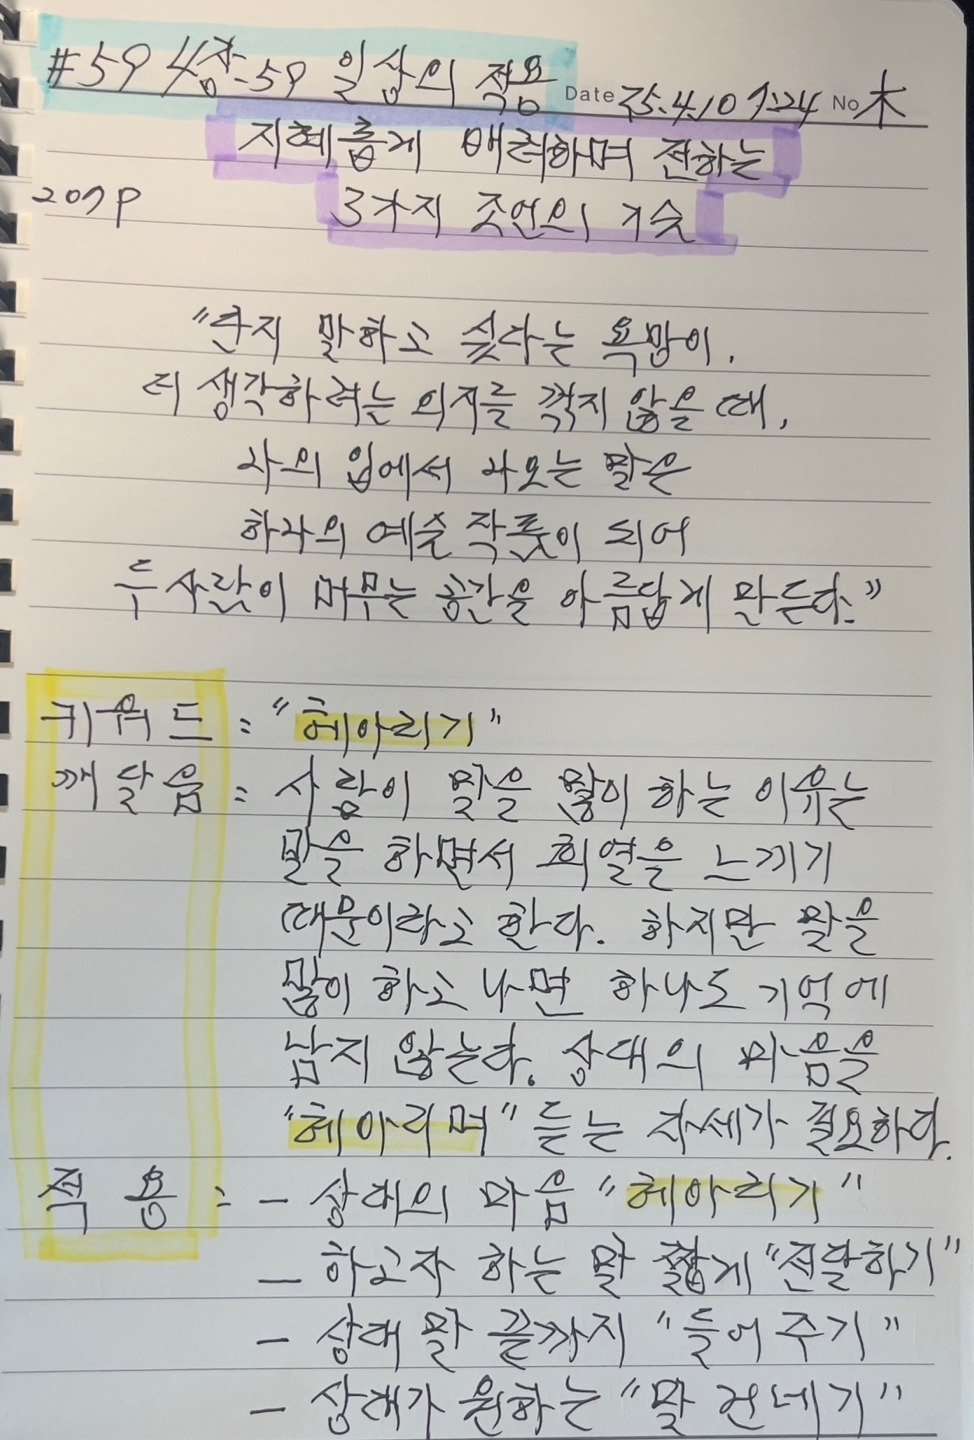 #59 4장-59 일상의 적용 Date 25.4.10 7:24 No 木
지혜롭게 배려하며 전하는
207p 3가지 조언의 기술
"단지 말하고 싶다는 욕망이,
더 생각하려는 의지를 꺾지 않을 때,
나의 입에서 나오는 말은
하나의 예술 작품이 되어
두 사람이 머무는 공간을 아름답게 만든다."
키워드 : "헤아리기"
깨달음 : 사람이 말을 많이 하는 이유는
말을 하면서 희열을 느끼기
때문이라고 한다. 하지만 말을
많이 하고 나면 하나도 기억에
남지 않는다. 상대의 마음을
"헤아리며" 듣는 자세가 필요하다.
적용 : - 상대의 마음 "헤아리기"
- 하고자 하는 말 짧게 "전달하기"
- 상대 말 끝까지 "들어 주기"
- 상대가 원하는 "말 건네기"